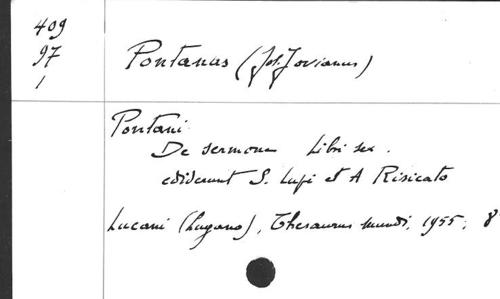 409
97
1
Pontanus (Joh. Jovianus)
Pontani
De sermone Libri sex.
ediderunt S. Lupi et A Risicato
Lucani (Lugano), Thesaurus mundi, 1955; 8